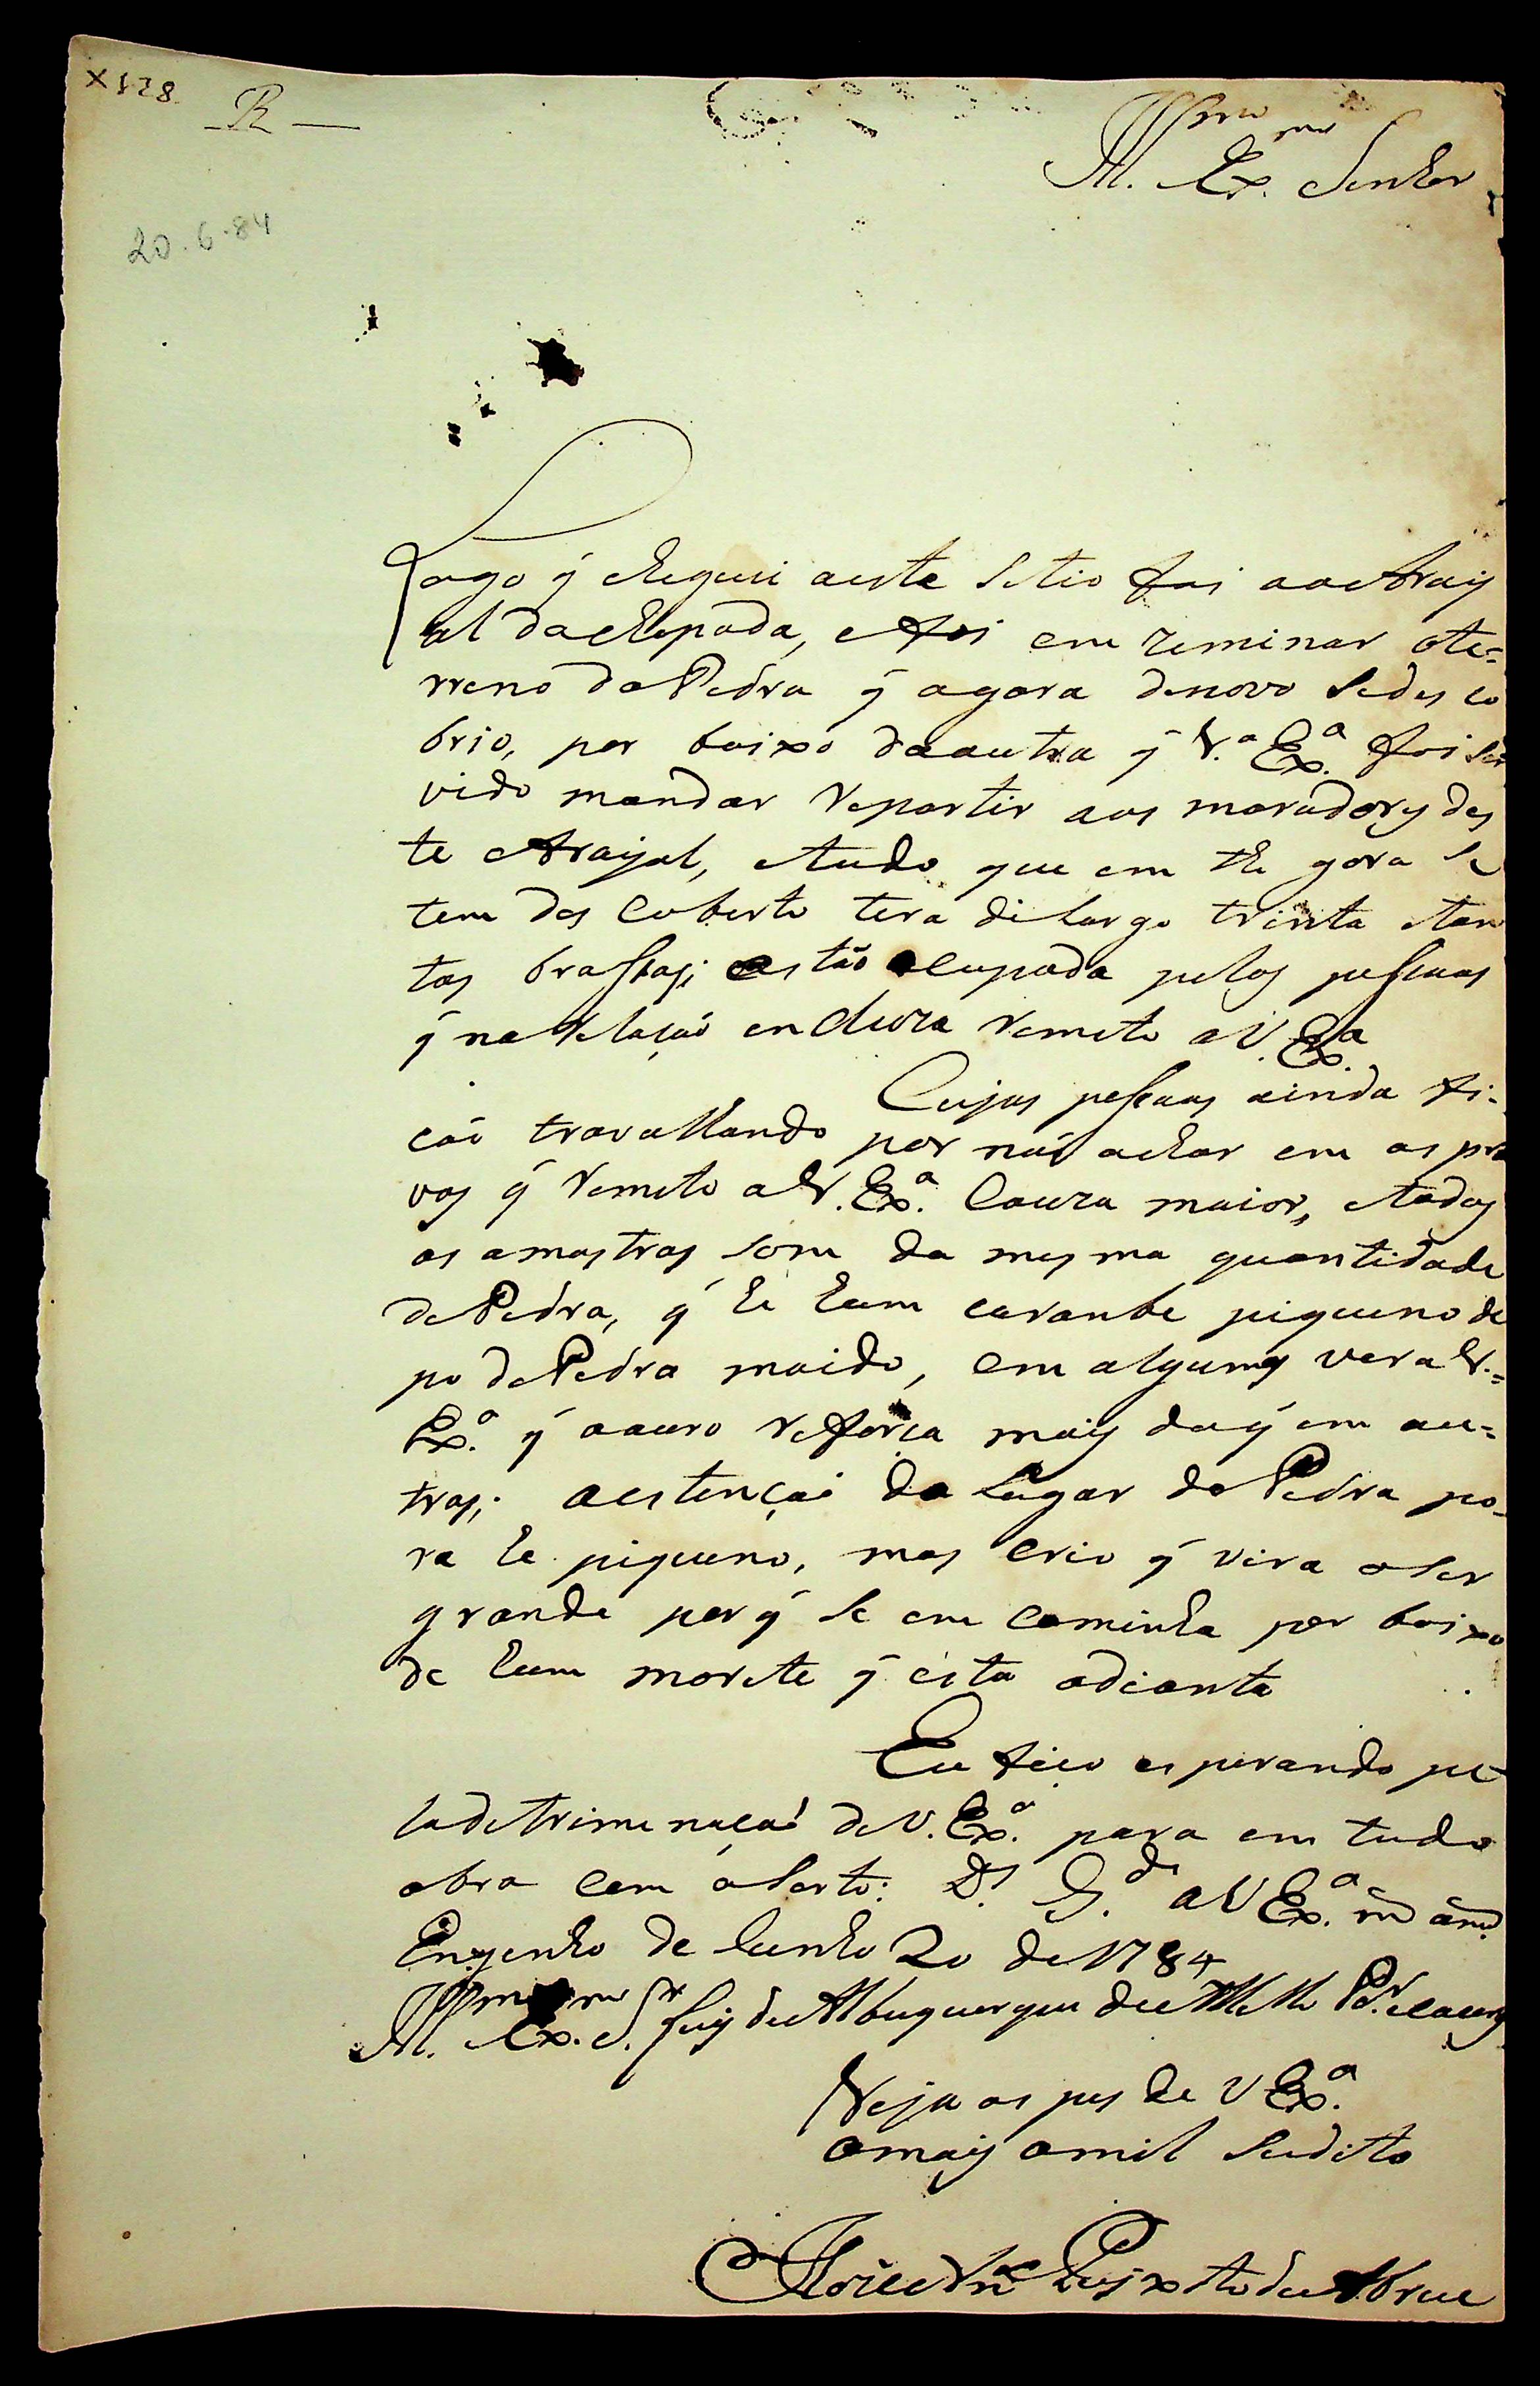 X 128
R
Illmo Exmo Senhor
20.6.84
Logo q̃ cheguei aeste Sitio fui aoArraiy
al daChapada, efoi em zeminar ote=
rreno daPedra q̃ agora denovo Sedes co
brio, por baixo daoutra q̃ V.ª Ex.ª foi Ser
vido mandar Repartir aos moradorȩs des
te Arayal, etudo que em the gora Se
tem des Cuberto tera dilargo trinta etan
tas brassas; estão ocupada pelas pessuas
q̃ naRelação encluza Remeto aV. Ex.ª
Cujas pessuas ainda fi-
cão travalhando por não achar em as pro
vas q̃ Remeto aV. Ex.ª Couza maior, etadas
as amostras som da mesma quantidade
dePedra, q̃ he hum carambe piqueno de
po dePedra moido, em algumas vera V.=
Ex.ª q̃ oouro Reforca mais doq̃ em ou=
tras; aestenção do Lugar da Pedra po-
ra he piqueno, mas Crio q̃ vira aSer
grande por q̃ Se em Caminha por baixo
de hum morete q̃ esta adianta
Eu fico esperando pe
ladetriminação deV. Ex.ª para em tudo
obra Com aSerto: D.s G.de aV Ex.ª
Engenho de Junho 20 de 1784
Illmo Exmo Sr Luis deAlbuquerque deMello Pr.ª eCaceres
Veja os pes de V Ex.ª
omais omil Sudito
Peixoto deAbreu